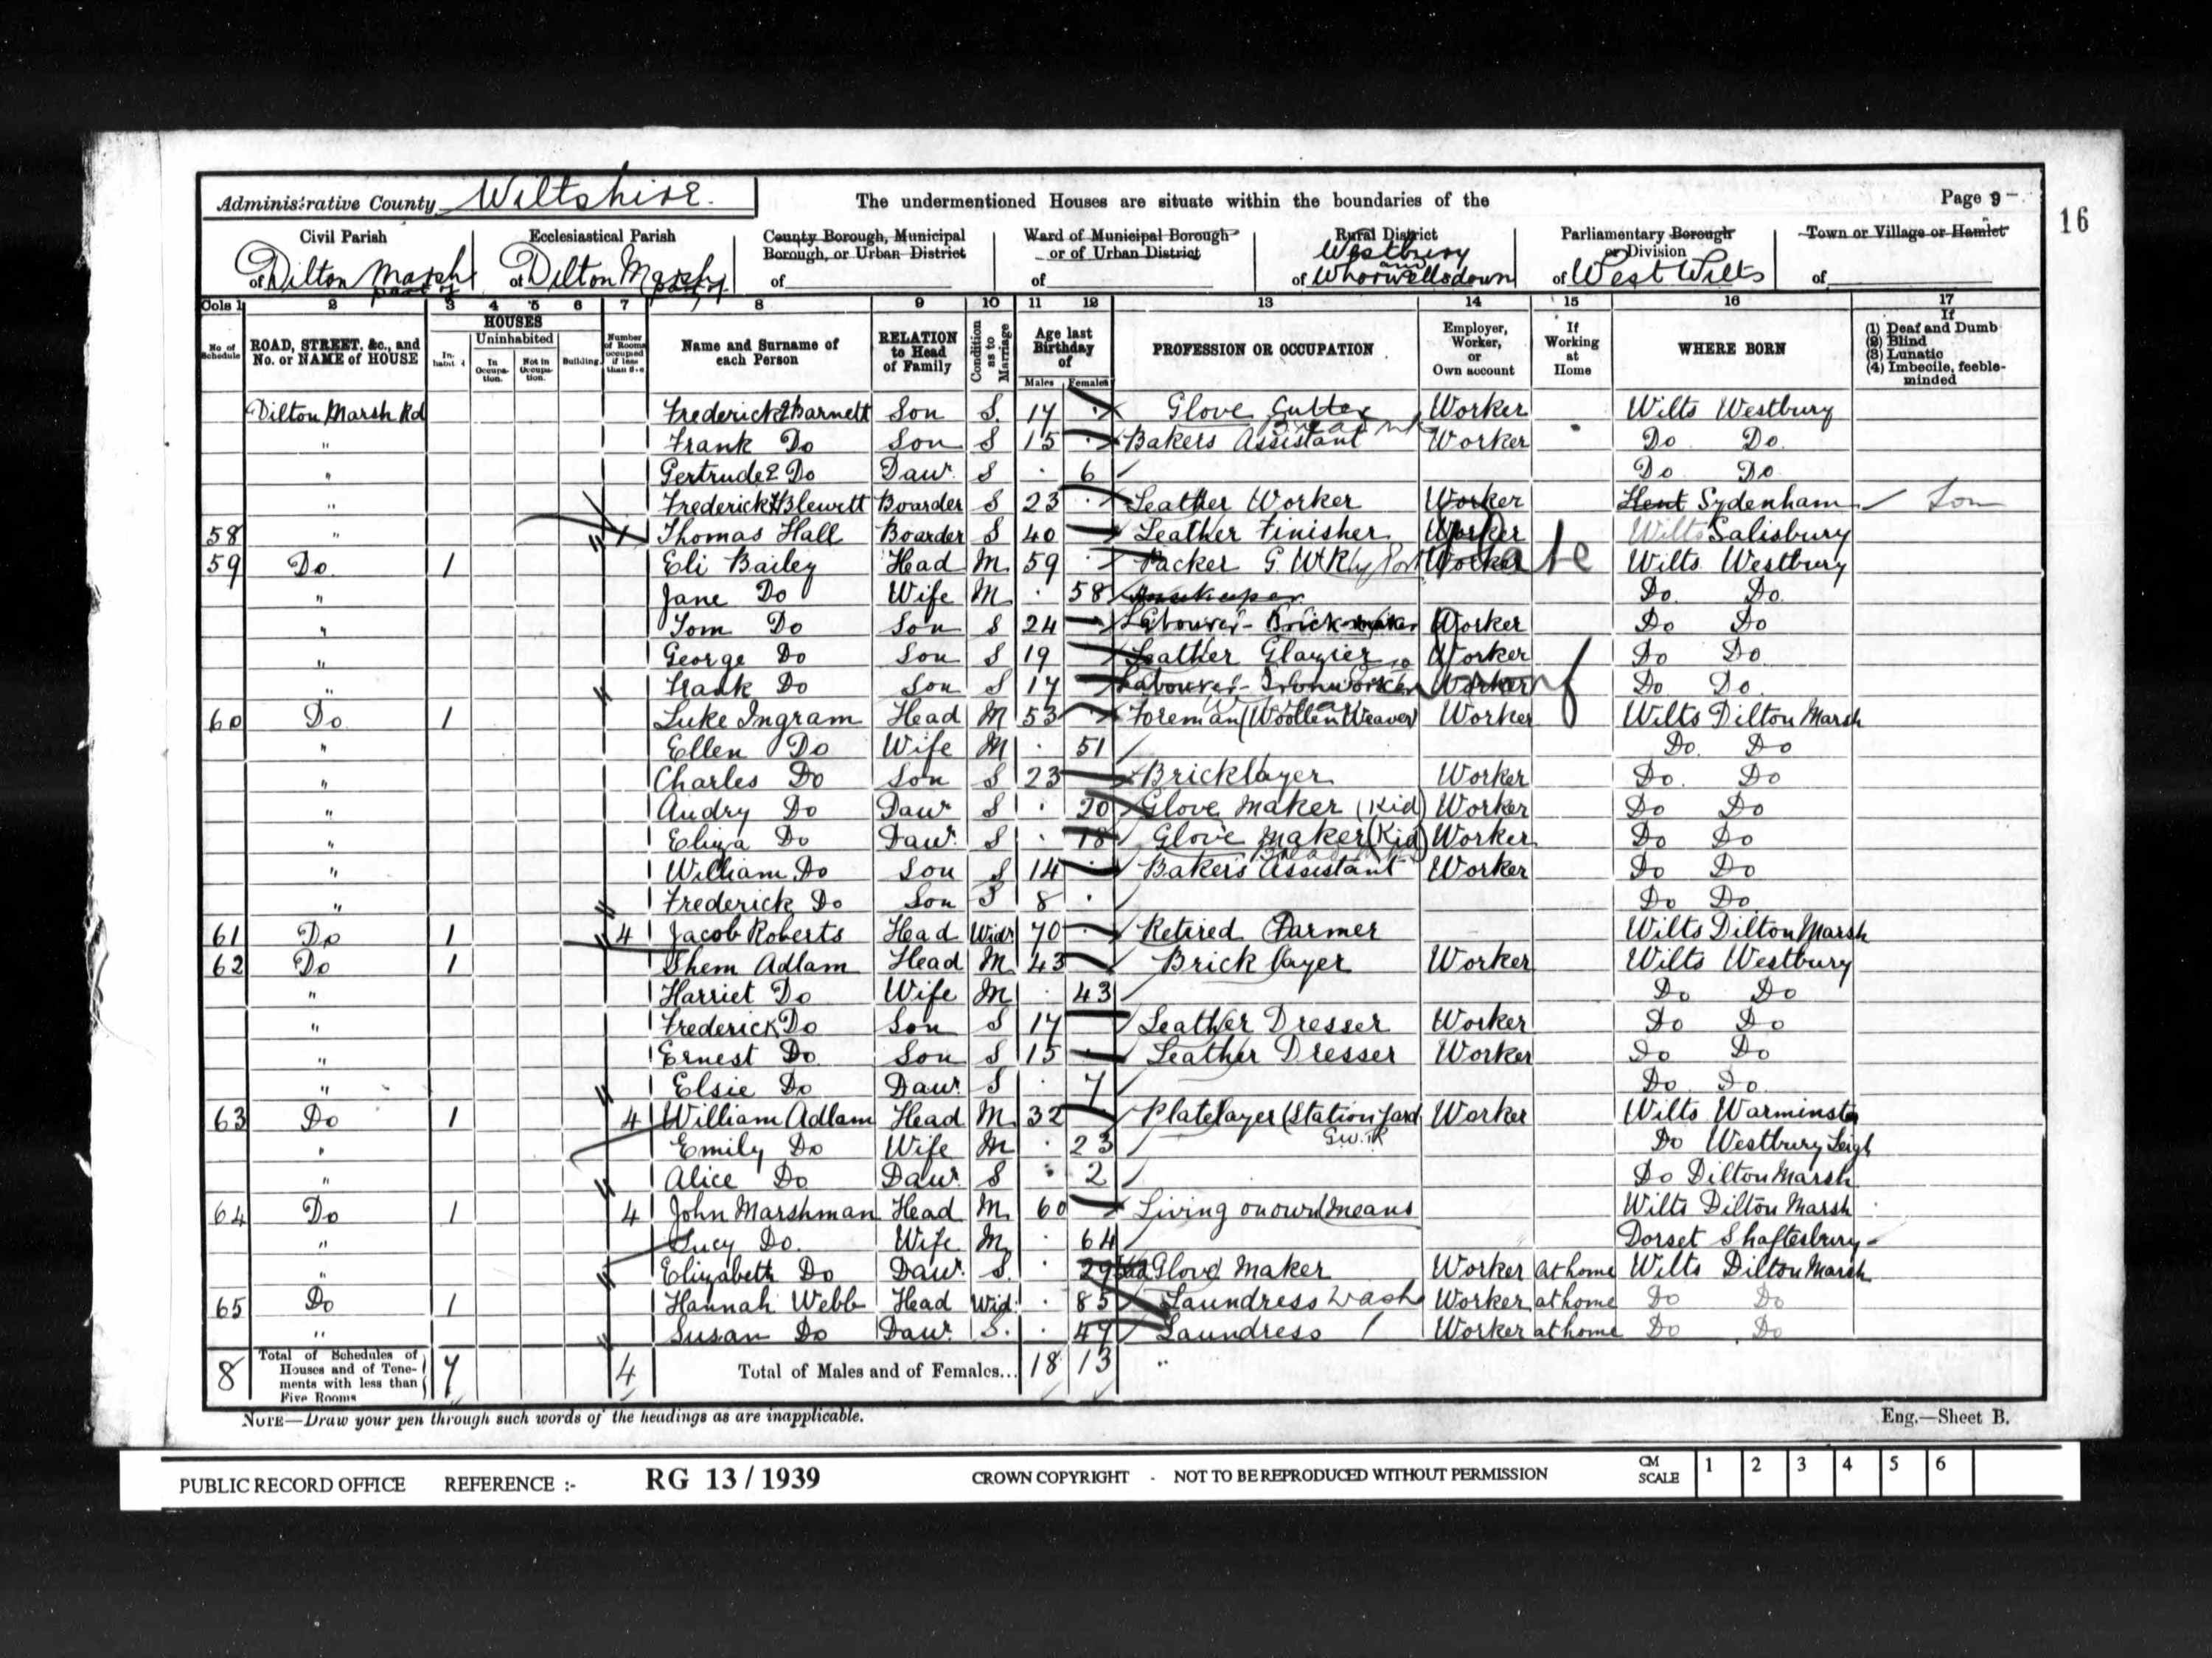 Administrative County Wiltshire.
The undermentioned Houses are situate within the boundaries of the
Page 9
16
Civil Parish
Ecclesiastical Parish
County Borough, Municipal Borough, or Urban District
Ward of Municipal Borough or of Urban District
Rural District
Parliamentary Borough or Division
Town or Village or Hamlet
of Dilton Marsh part of
of Dilton Marsh
of
of
Westbury and of Whorwellsdown
of West Wilts
of
Cols 1 2 3 4 5 6 7 8 9 10 11 12 13 14 15 16 17
No. of Schedule
ROAD, STREET, &c., and No. or NAME of HOUSE
HOUSES
Inhabited
Uninhabited
In Occupation.
Not in Occupation.
Building.
Number of Rooms occupied if less than five
Name and Surname of each Person
RELATION to Head of Family
Condition as to Marriage
Age last Birthday of
Males Females
PROFESSION OR OCCUPATION
Employer, Worker, or Own account
If Working at Home
WHERE BORN
If (1) Deaf and Dumb (2) Blind (3) Lunatic (4) Imbecile, feeble-minded
Dilton Marsh Rd Frederick Barnett Son S. 17 Glove Cutter Worker Wilts Westbury
" Frank Do Son S 15 Bakers Assistant Worker Do Do
" Gertrude E Do Daur. S 6 Do Do
" Frederick H Blewett Boarder S 23 Leather Worker Worker Kent Sydenham Lon
58 " 1 Thomas Hall Boarder S 40 Leather Finisher Worker Wilts Salisbury
59 Do 1 Eli Bailey Head M. 59 Packer G.W.Rly Worker Wilts Westbury
" Jane Do Wife M 58 Do Do
" Tom Do Son S 24 Labourer - Brick Worker Do Do
" George Do Son S 19 Leather Glazier Worker Do Do
" Frank Do Son S 17 Labourer - Ironworks Worker Do Do
60 Do 1 Luke Ingram Head M 53 Foreman (Woollen Weaver) Worker Wilts Dilton Marsh
" Ellen Do Wife M 51 Do Do
" Charles Do Son S 23 Bricklayer Worker Do Do
" Audry Do Daur S 20 Glove Maker (Kid) Worker Do Do
" Eliza Do Daur. S 18 Glove Maker (Kid) Worker Do Do
" William Do Son S 14 Bakers Assistant Worker Do Do
" Frederick Do Son S 8 Do Do
61 Do 1 4 Jacob Roberts Head Widr 70 Retired Farmer Wilts Dilton Marsh
62 Do 1 Shem Adlam Head M. 43 Brick layer Worker Wilts Westbury
" Harriet Do Wife M 43 Do Do
" Frederick Do Son S 17 Leather Dresser Worker Do Do
" Ernest Do Son S 15 Leather Dresser Worker Do Do
" Elsie Do Daur. S 7 Do Do
63 Do 1 4 William Adlam Head M. 32 Platelayer (Station Yard Worker Wilts Warminster
G.W.R
" Emily Do Wife M 23 Do Westbury Leigh
" Alice Do Daur. S 2 Do Dilton Marsh
64 Do 1 4 John Marshman Head M. 60 Living on own means Wilts Dilton Marsh
" Lucy Do. Wife M. 64 Dorset Shaftesbury
" Elizabeth Do Daur. S. 29 Glove Maker Worker At home Wilts Dilton Marsh
65 Do 1 Hannah Webb Head Wid. 85 Laundress Wash Worker at home Do Do
" Susan Do Daur. S. 47 Laundress Worker at home Do Do
8 Total of Schedules of Houses and of Tenements with less than Five Rooms 7 4 Total of Males and of Females... 18 13
NOTE—Draw your pen through such words of the headings as are inapplicable.
Eng.—Sheet B.
PUBLIC RECORD OFFICE REFERENCE :- RG 13 / 1939 CROWN COPYRIGHT - NOT TO BE REPRODUCED WITHOUT PERMISSION CM SCALE 1 2 3 4 5 6